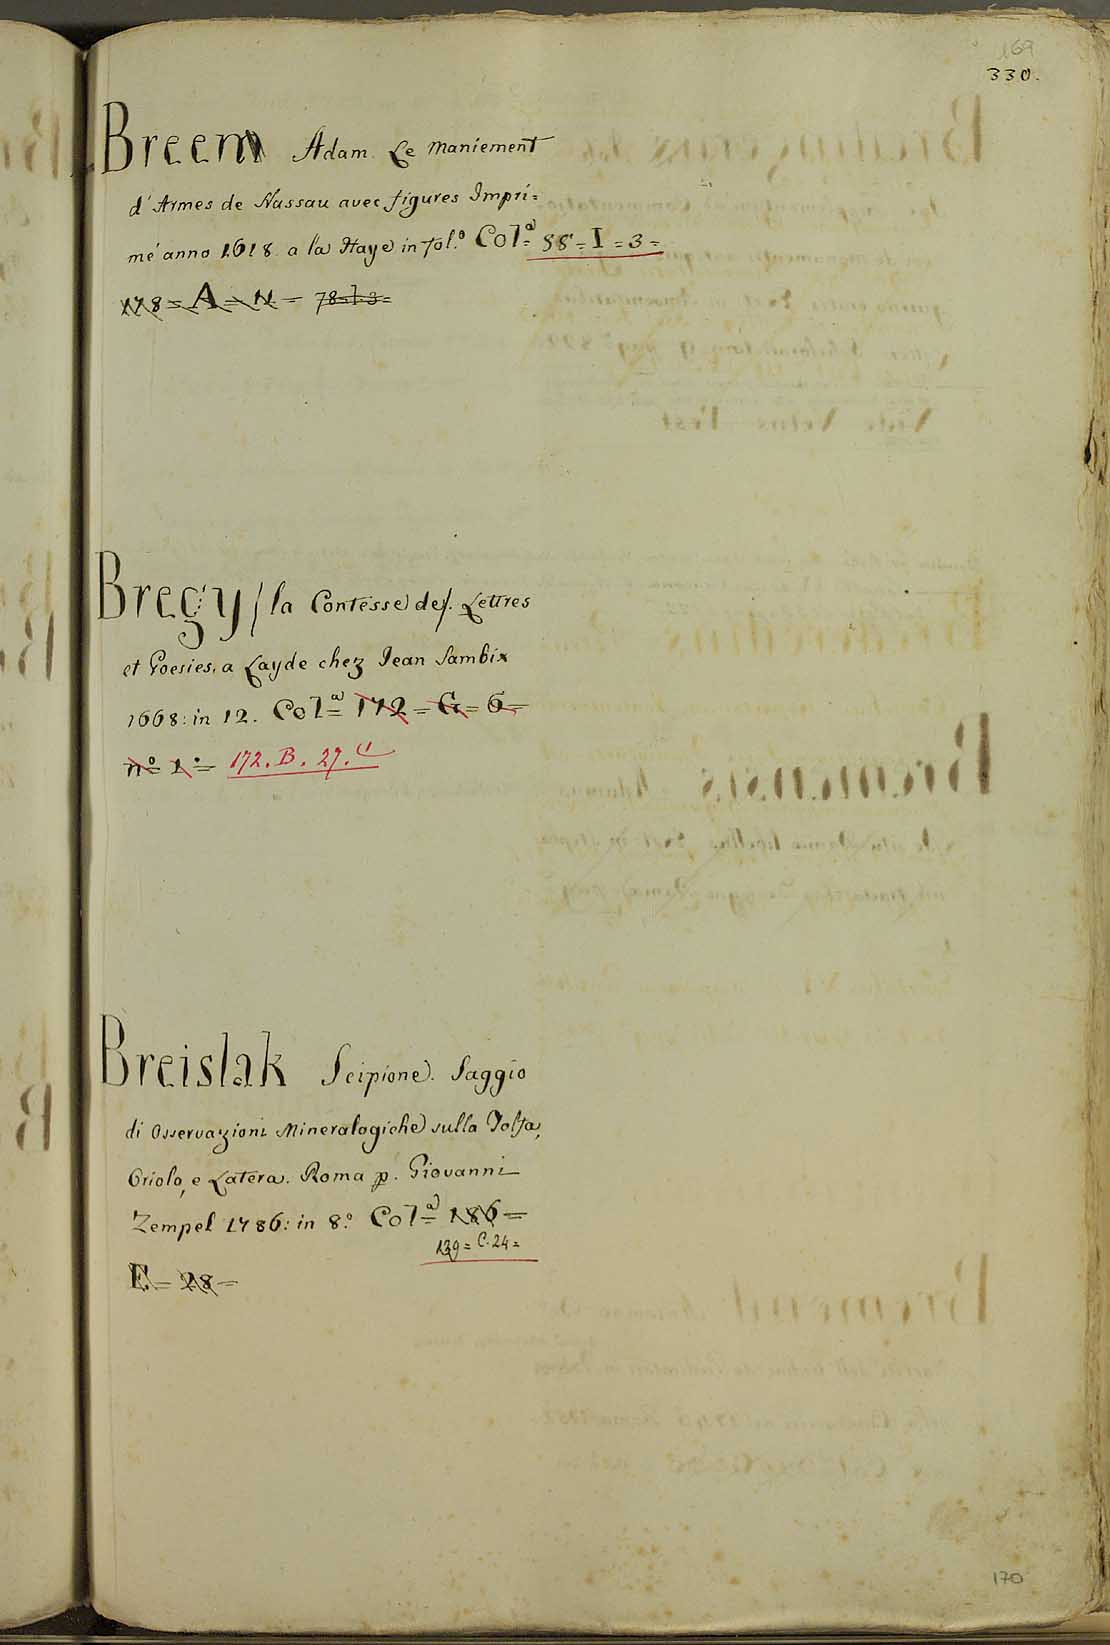 169
330.
Breen Adam. Le Maniement
d'Armes de Nassau avec figures Impri=
mé anno 1618. a la Haye in fol.º Col.ª 58=I=3=
178=A=N= 78=I=3=
Bregy /la Contesse de/. Lettres
et Poesies, a Layde chez Jean Sambix
1668: in 12. Col=ª 172=G=6=
nº= 1º= 172. B. 27. (1
Breislak Scipione. Saggio
di Osservazioni Mineralogiche sulla Tolfa,
Oriolo, e Latera. Roma p. Giovanni
Zempel 1786: in 8º. Col=ª 186=
139=C.24=
E=28=
170